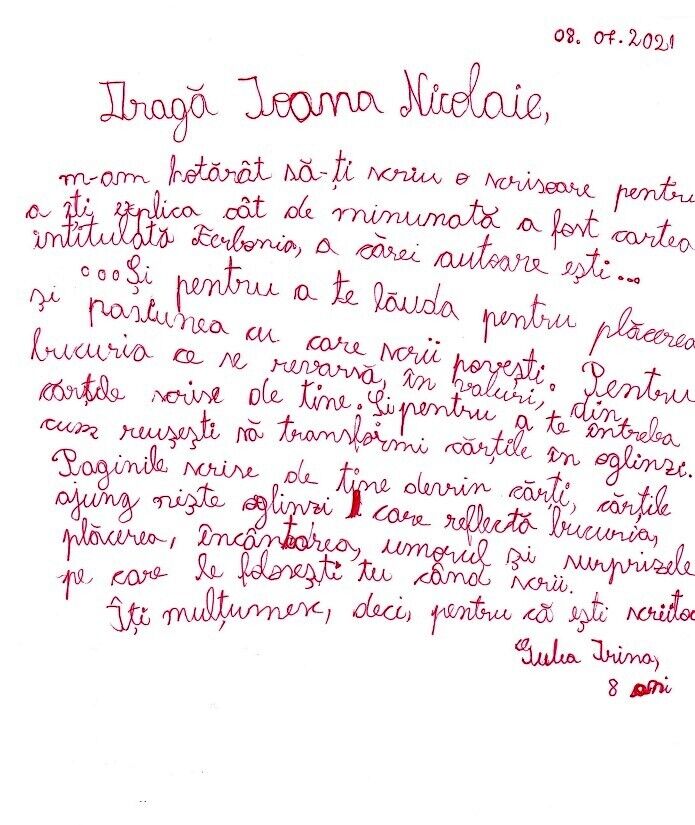 08. 07. 2021
Dragă Ioana Nicolaie,
m-am hotărât să-ți scriu o scrisoare pentru
a îți explica cât de minunată a fost cartea
intitulată Ferbonia, a cărei autoare ești...
...Și pentru a te lăuda pentru plăcerea
și pasiunea cu care scrii povești. Pentru
bucuria ce se revarsă, în valuri, din
cărțile scrise de tine. Și pentru a te întreba
cum reușești să transformi cărțile în oglinzi.
Paginile scrise de tine devin cărți, cărțile
ajung niște oglinzi care reflectă bucuria,
plăcerea, încântarea, umorul și surprizele
pe care le folosești tu când scrii.
Îți mulțumesc, deci, pentru că ești
Irina,
8 ani